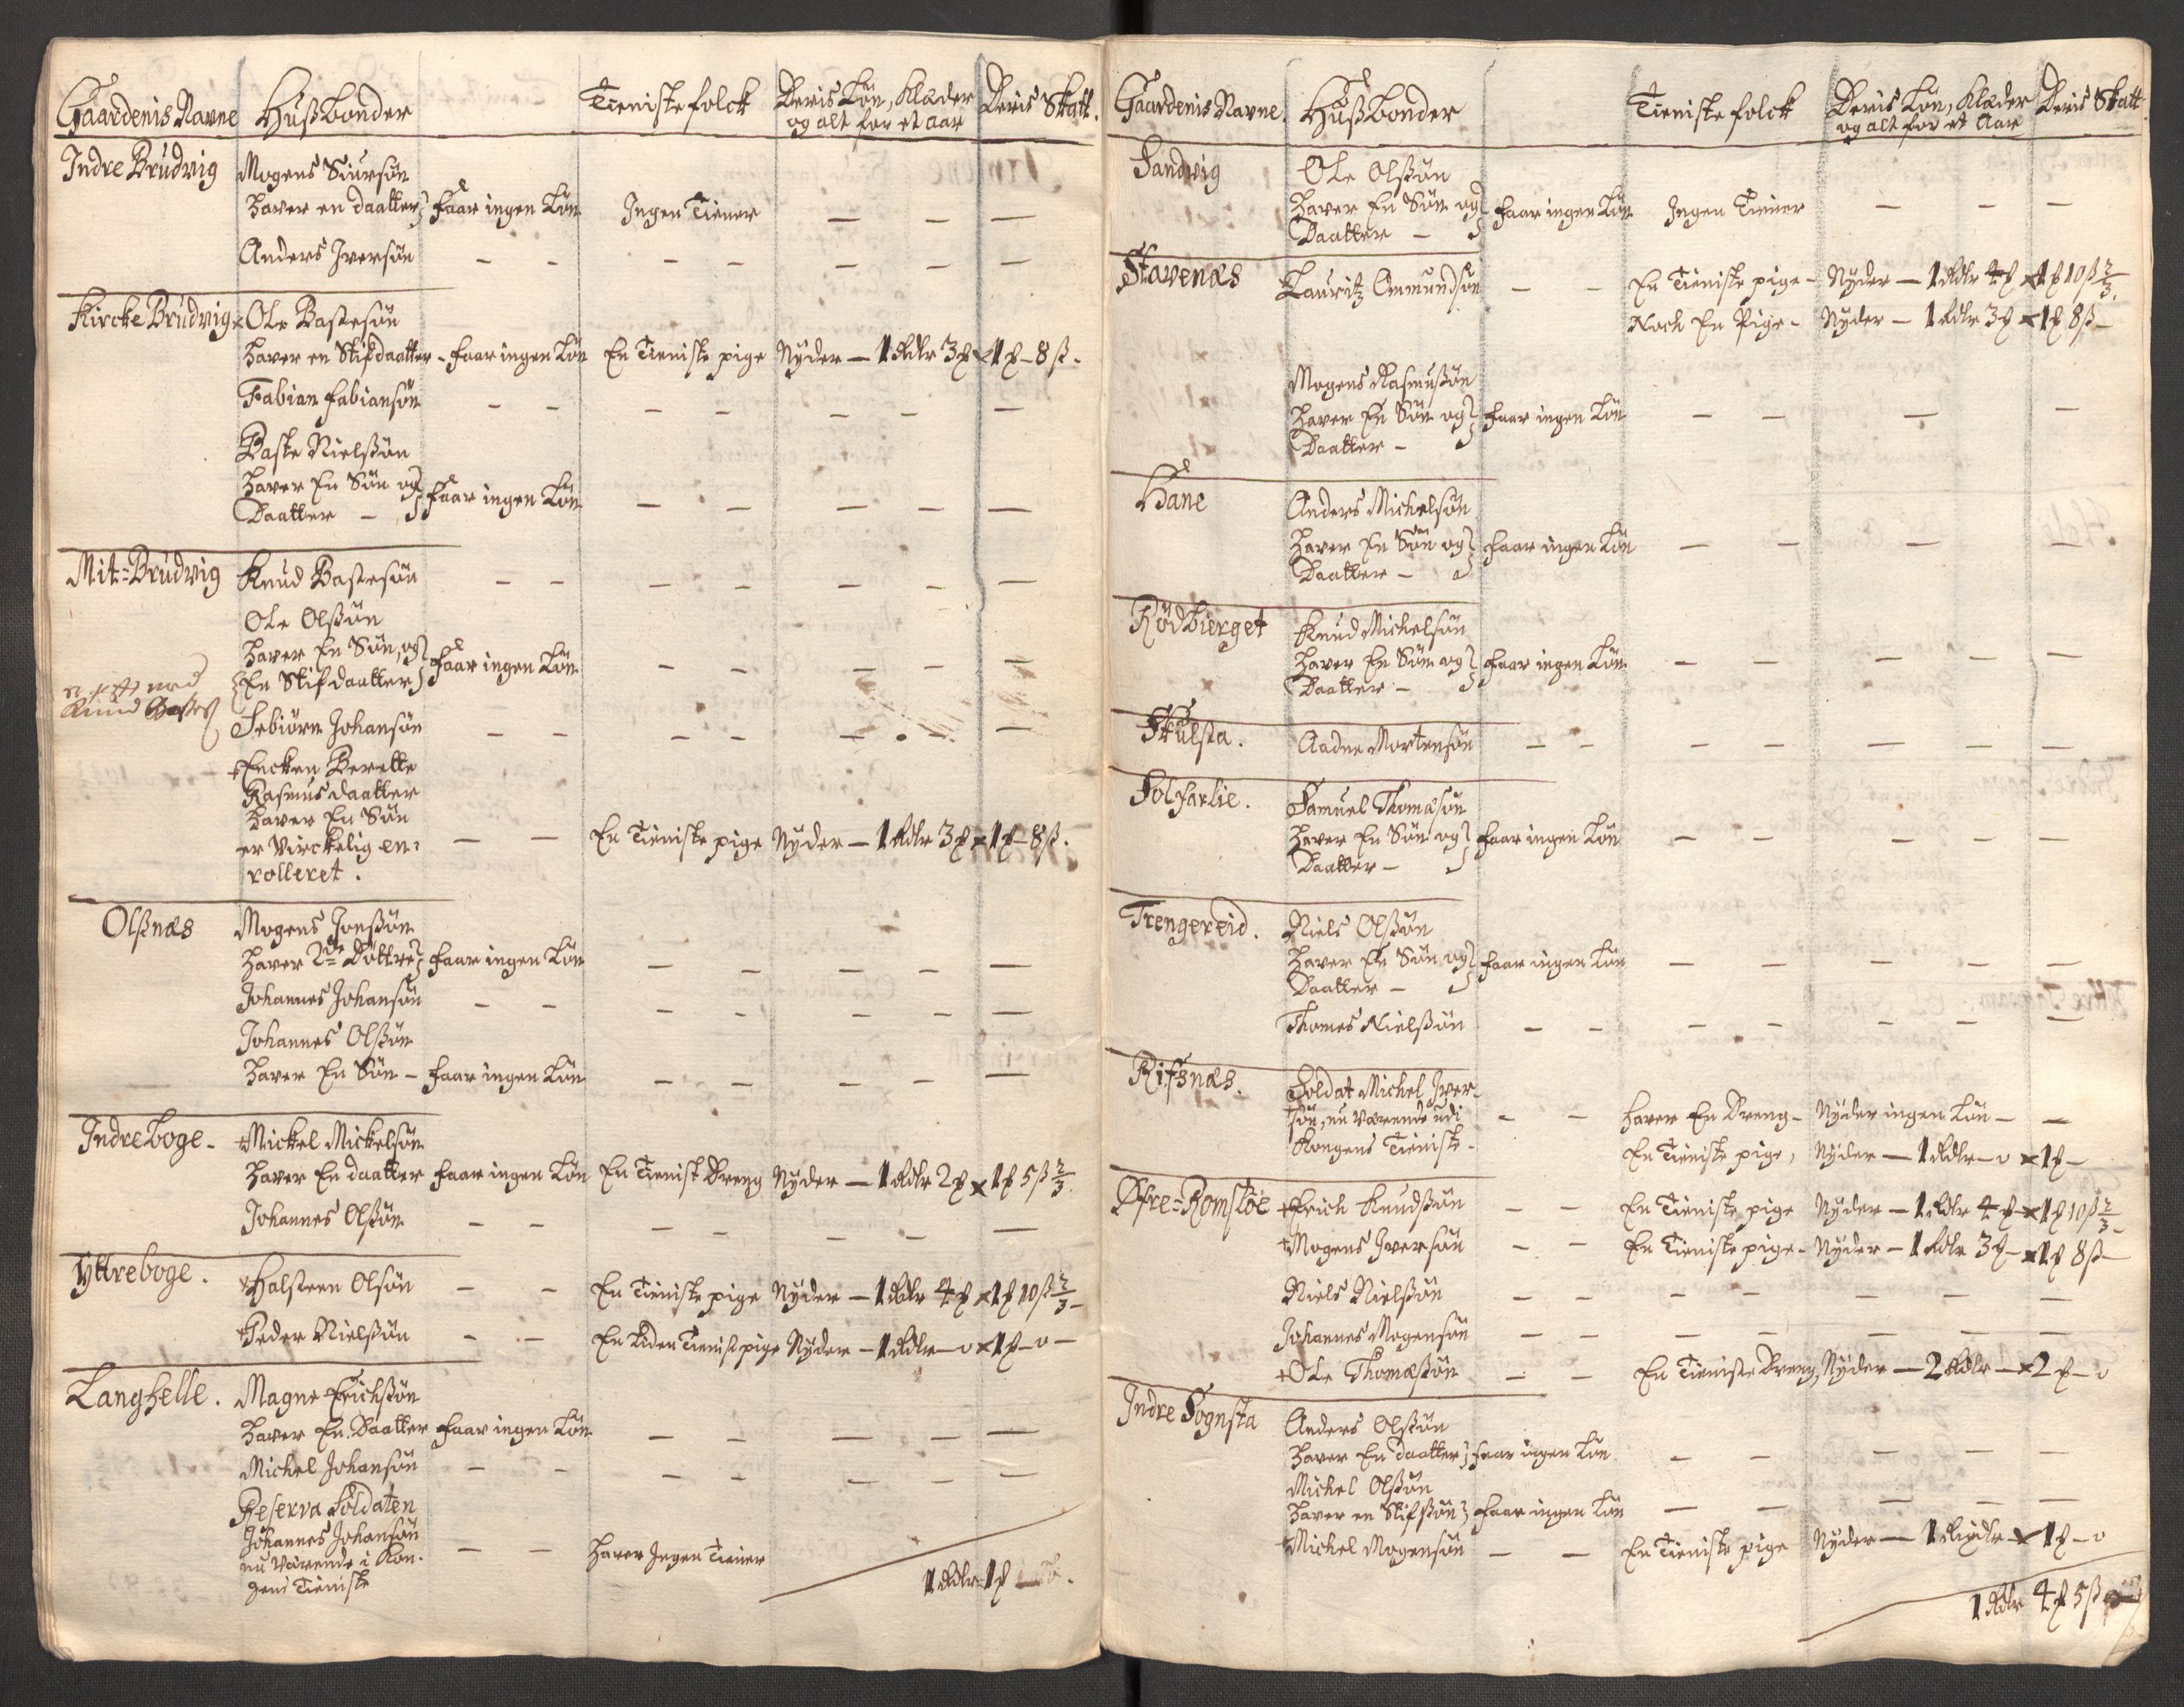 Gaardenis Navne Hußbonder Tienistefolck Deris Løn, Klæder Deris Skatt.
og alt for et aar
Indre Brudvig Mogens Siursøn
haver en daatter faar ingen Løn Ingen Tiener — — —
Anders Iversøn - - — — — — —
Kircke Brudvig Ole Bastesøn
haver en Stifdaatter - faar ingen Løn En Tieniste pige Nyder — 1 Rdlr 3 x 1 - 8 ß -
Fabian Fabiansøn - - — — — — —
Baste Nielßøn
haver En Søn og
Daatter - faar ingen Løn — — — — —
Mit-Brudvig Knud Bastesøn - - — — — — —
Ole Olßøn
haver En Søn, og
En Stifdaatter faar ingen Løn — — — — —
Knud
Febiørn Johansøn - - — — — — —
Encken Berette
Rasmusdaatter
haver En Søn
er Virckelig en- — — En Tieniste pige Nyder — 1 Rdlr 3 x 1 - 8 ß.
rolleret.
Olßnæs Mogens Jonßøn
haver 2de Døttre faar ingen Løn — — — — —
Johannes Johansøn - - — — — — —
Johannes Olßøn
haver En Søn - faar ingen Løn — — — — —
Indreboge - Mickel Mickelsøn
haver En daatter faar ingen Løn En Tienist Dreng Nyder — 1 Rdlr 2 x 1 5 ß 2/3.
Johannes Olßøn - - — — — — —
Yttreboge. Halsteen Olsøn - - En Tieniste pige Nyder — 1 Rdlr 4 x 1 10 ß 2/3 -
Peder Nielßøn - - En Liden Tienist pige Nyder — 1 Rdlr - o x 1 - o -
Langhelle. Magne Erichsøn
haver En Daatter faar ingen Løn — — — — —
Michel Johansøn - - — — — — —
Reserva Soldaten
Johannes Johansøn
nu Værende i Kon- — — haver Ingen Tiener
gens Tieniste
1 Rdlr 1
Gaardenis Navne Hußbonder Tienistefolck Deris Løn, Klæder Deris Skatt
og alt for et Aar
Sandvig Ole Olßøn
haver En Søn og faar ingen Løn Ingen Tiener — — —
Daatter -
Stavenæs Lauritz Ommundsøn — - En Tieniste pige - Nyder — 1 Rdlr 4 x 1 10 ß 2/3.
Noch En Pige - Nyder — 1 Rdlr 3 x 1 8 ß -
Mogens Rasmußøn
haver En Søn og faar ingen Løn — — — —
Daatter -
Hane Anders Michelsøn
haver En Søn og faar ingen Løn — — — —
Daatter -
Rødbierget Knud Michelsøn
haver En Søn og faar ingen Løn — — — — —
Daatter -
Skulsta. Aadne Mortensøn — - — — — — —
Solfarlie. Samuel Thomæsøn
haver En Søn og faar ingen Løn — — — — —
Daatter -
Trengereid. Niels Olßøn
haver En Søn og faar ingen Løn — — — — —
Daatter -
Thomes Nielßøn — - — — — — —
Rifsnæs. Soldat Michel Iver-
søn, nu Værende udi - - haver En Dreng - Nyder ingen Løn - —
Kongens Tieniste - En Tieniste pige, Nyder — 1 Rdlr - o x 1 -
Øfre-Romsløe Erich Knudßøn - - En Tieniste pige Nyder — 1 Rdlr 4 x 1 10 ß 2/3 -
Mogens Iversøn - - En Tieniste pige - Nyder — 1 Rdlr 3 - x 1 8 ß -
Niels Nielßøn - - - — — — —
Johannes Mogensøn — — — — — — —
Ole Thomæsøn — — En Tieniste Dreng, Nyder — 2 Rdlr — x 2 - o
Indre Sognsta Anders Olsøn
haver En daatter faar ingen Løn — — — — —
Michel Olßøn
haver en Stifsøn faar ingen Løn — — — — —
Michel Mogensøn — — En Tieniste pige Nyder — 1 Rixdlr x 1 - o
1 Rdlr 4 5 ß